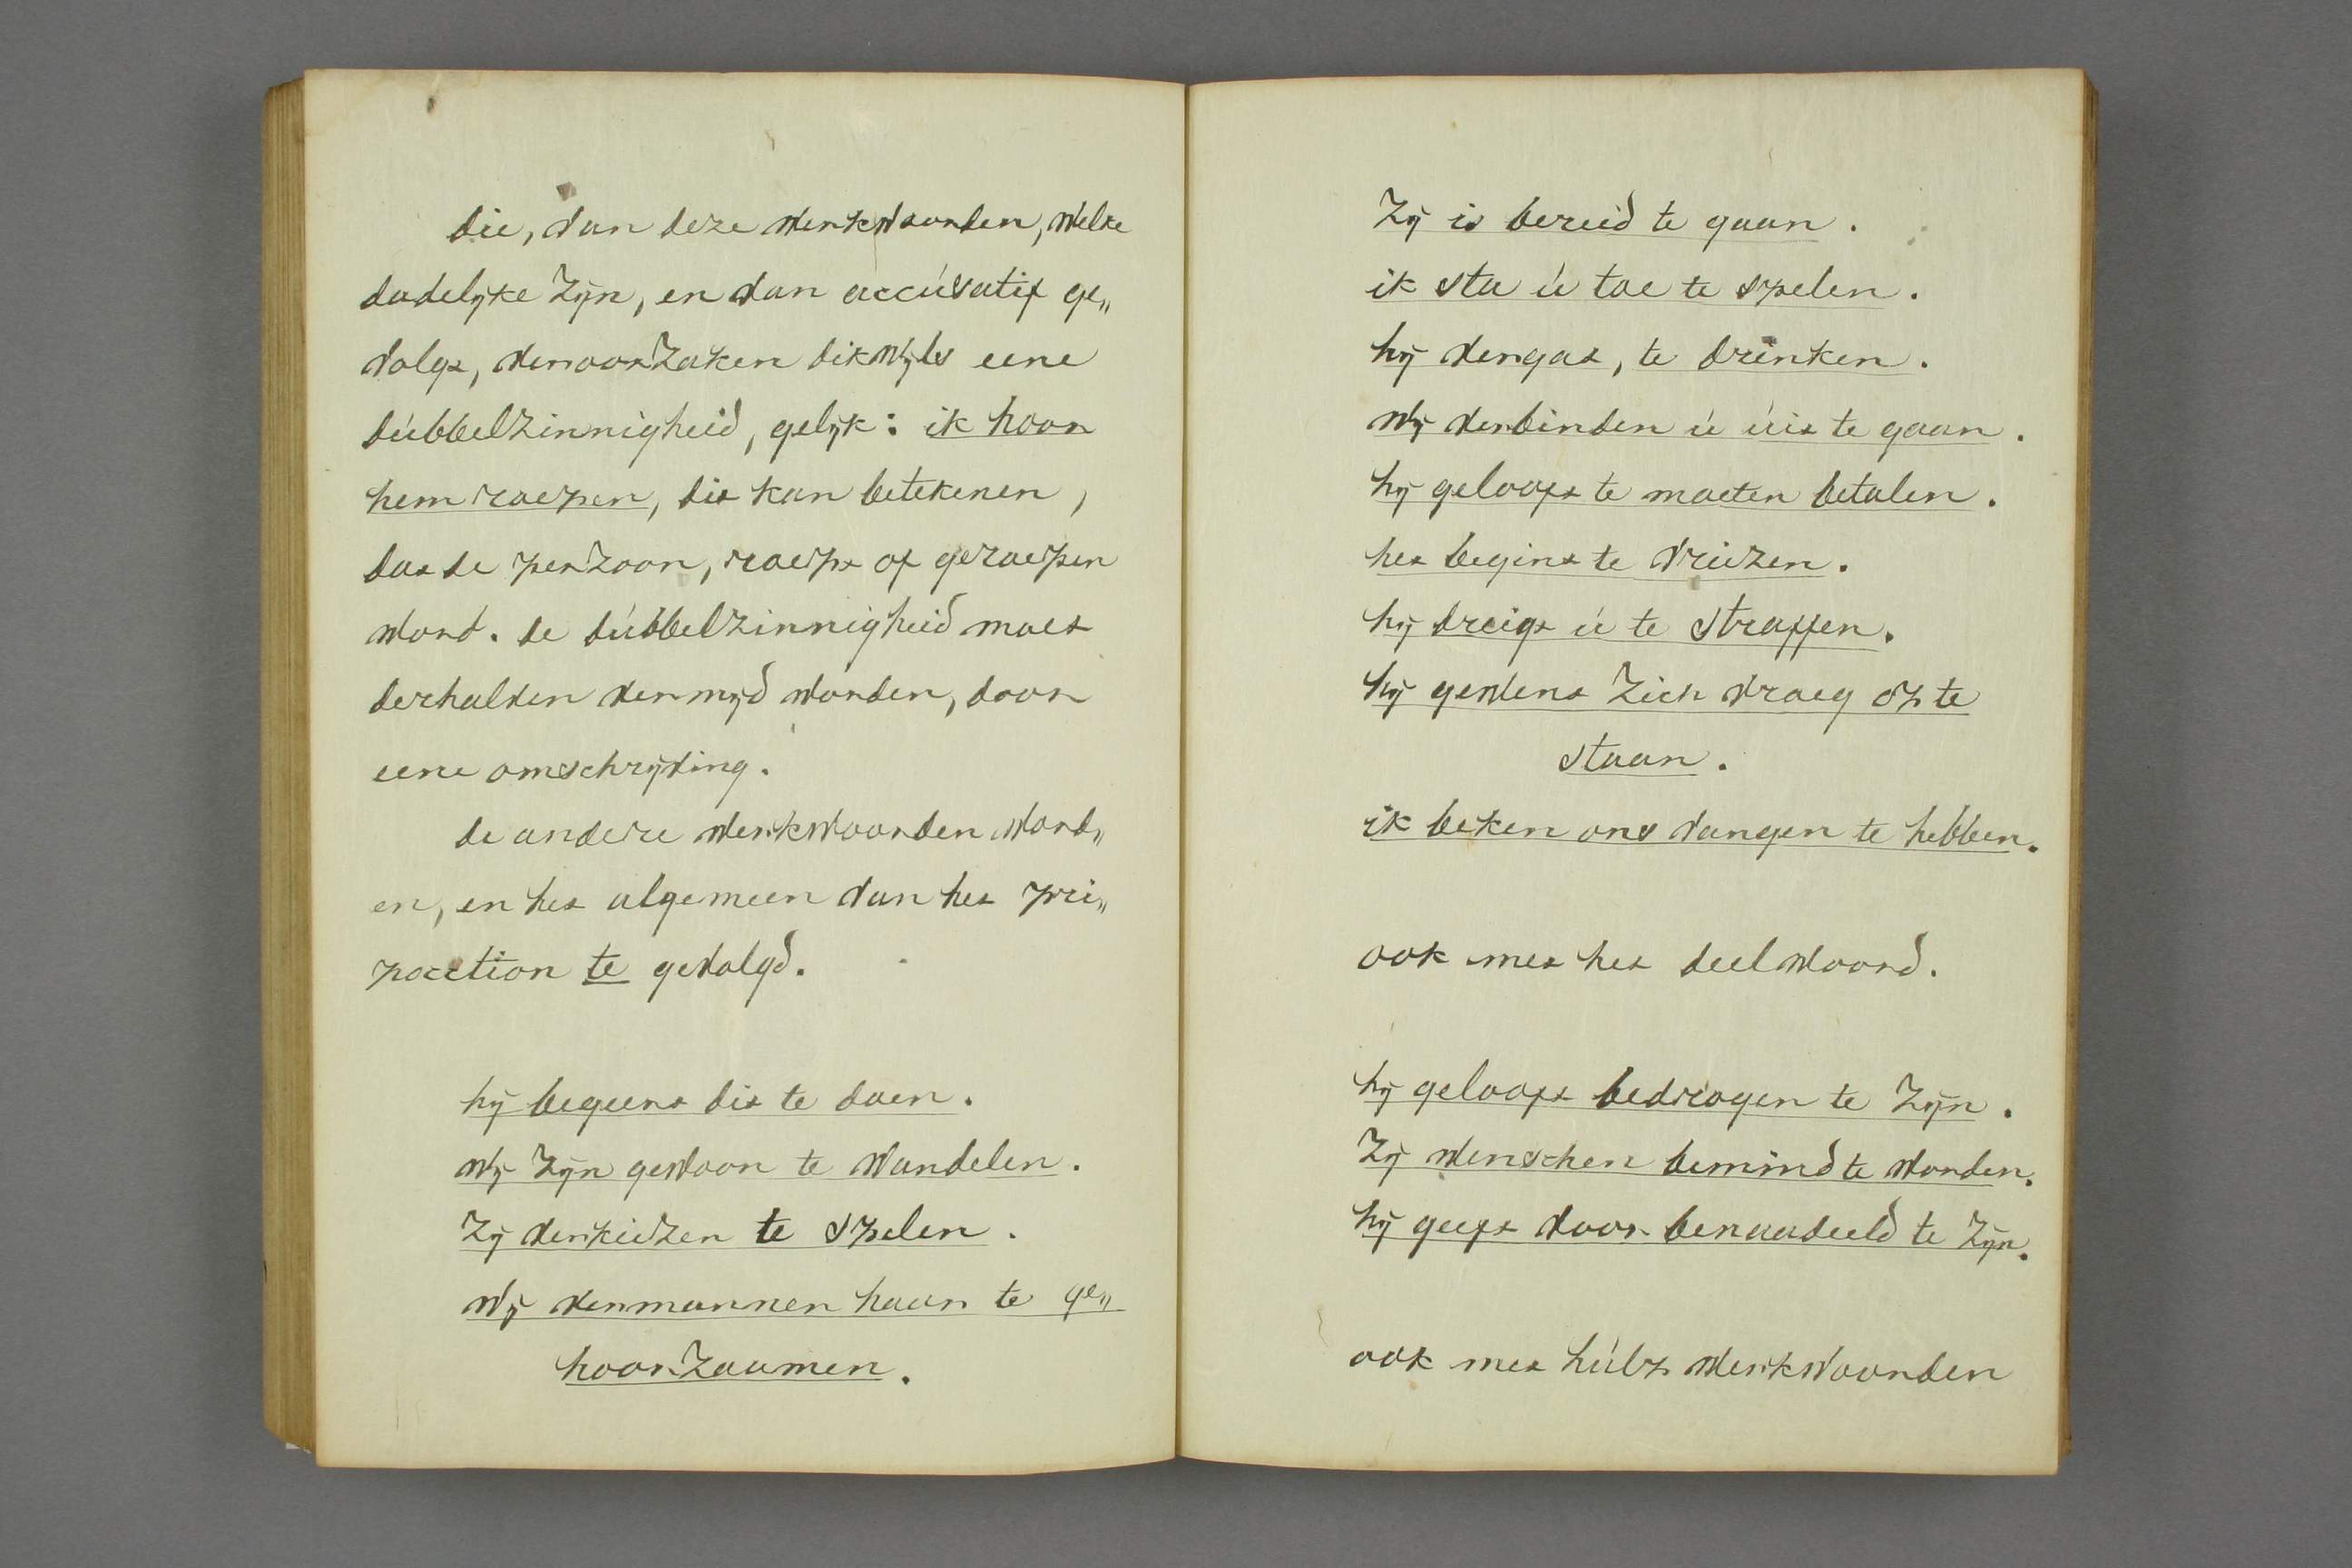 die, van deze werkwoorden, welke
dadelyke Zÿn, en van accúsatif ge„
volgt, veroorZaken dikwÿls eene
dúbbelZinnigheid, gelÿk: ik hoor
hem roepen, dit kan betekenen,
dat de perZoon, roept of geroepen
word. de dúbbelzinnigheid moet
derhalven vermÿd worden, door
eene omschrÿving.
de andere werkwoorden word„
en, en het algemeen van het pri„
poction te gevolgd.
hÿ begeert dit te doen.
wÿ Zÿn gewoon te wandelen.
Zÿ verkieZen te spelen.
wÿ vermannen haar te ge„
hoorZaamen.
Zÿ is bereid te gaan.
ik sta ú toe te spelen.
hÿ vergat, te drinken.
wÿ verbinden ú úit te gaan.
hÿ gelooft te moeten betalen.
het begint te vriezen.
hÿ dreigt ú te straffen.
hÿ gewent Zich vroeg op te
staan.
ik beken ons vangen te hebben.
ook met het deelwoord.
hÿ gelooft bedrogen te Zÿn.
Zÿ wenschen bemind te worden.
hÿ geeft voor benaadeeld te Zÿn.
ook met húlp werkwoorden